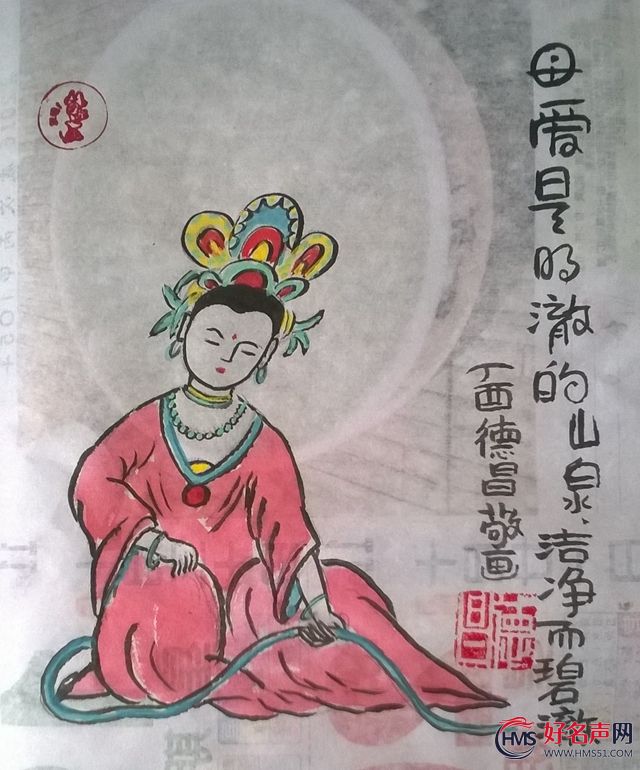 母爱是明澈的山泉、洁净而碧澈
丁酉德昌敬画
德昌
HMS
好名声网
WWW.HMS51.COM